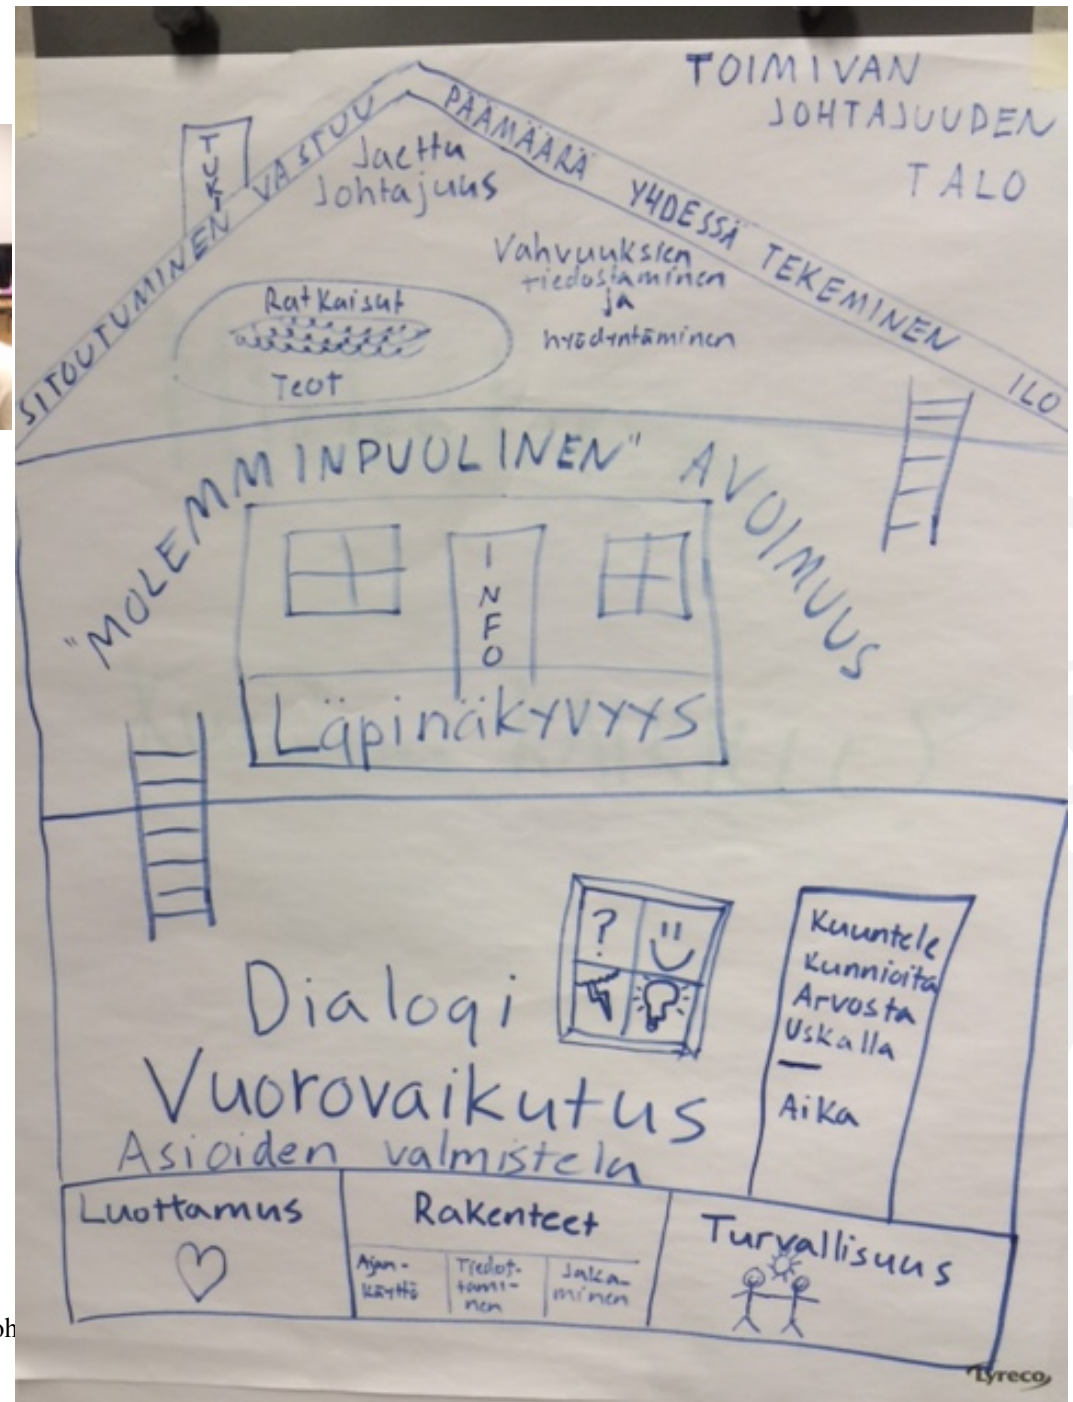 TOIMIVAN
JOHTAJUUDEN
TALO
TUKI
SITOUTUMINEN VASTUU
PÄÄMÄÄRÄ YHDESSÄ TEKEMINEN ILO
Jaettu
Johtajuus
Vahvuuksien
tiedostaminen
ja
hyödyntäminen
Ratkaisut
Teot
"MOLEMMINPUOLINEN" AVOIMUUS
INFO
Läpinäkyvyys
?
Dialogi
Vuorovaikutus
Asioiden valmistelu
Kuuntele
Kunnioita
Arvosta
Uskalla
—
Aika
Luottamus
Rakenteet
Ajan-
käyttö
Tiedot-
tami-
nen
Jaka-
minen
Turvallisuus
Lyreco